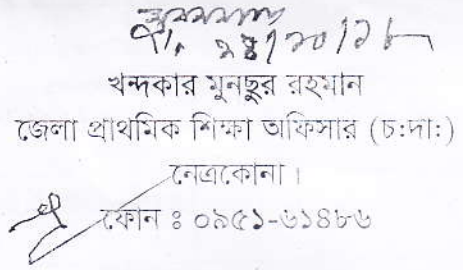 ২৪/১০/১৮
খন্দকার মুনছুর রহমান
জেলা প্রাথমিক শিক্ষা অফিসার (চ:দা:)
নেত্রকোনা।
ফোন ঃ ০৯৫১-৬১৪৮৬